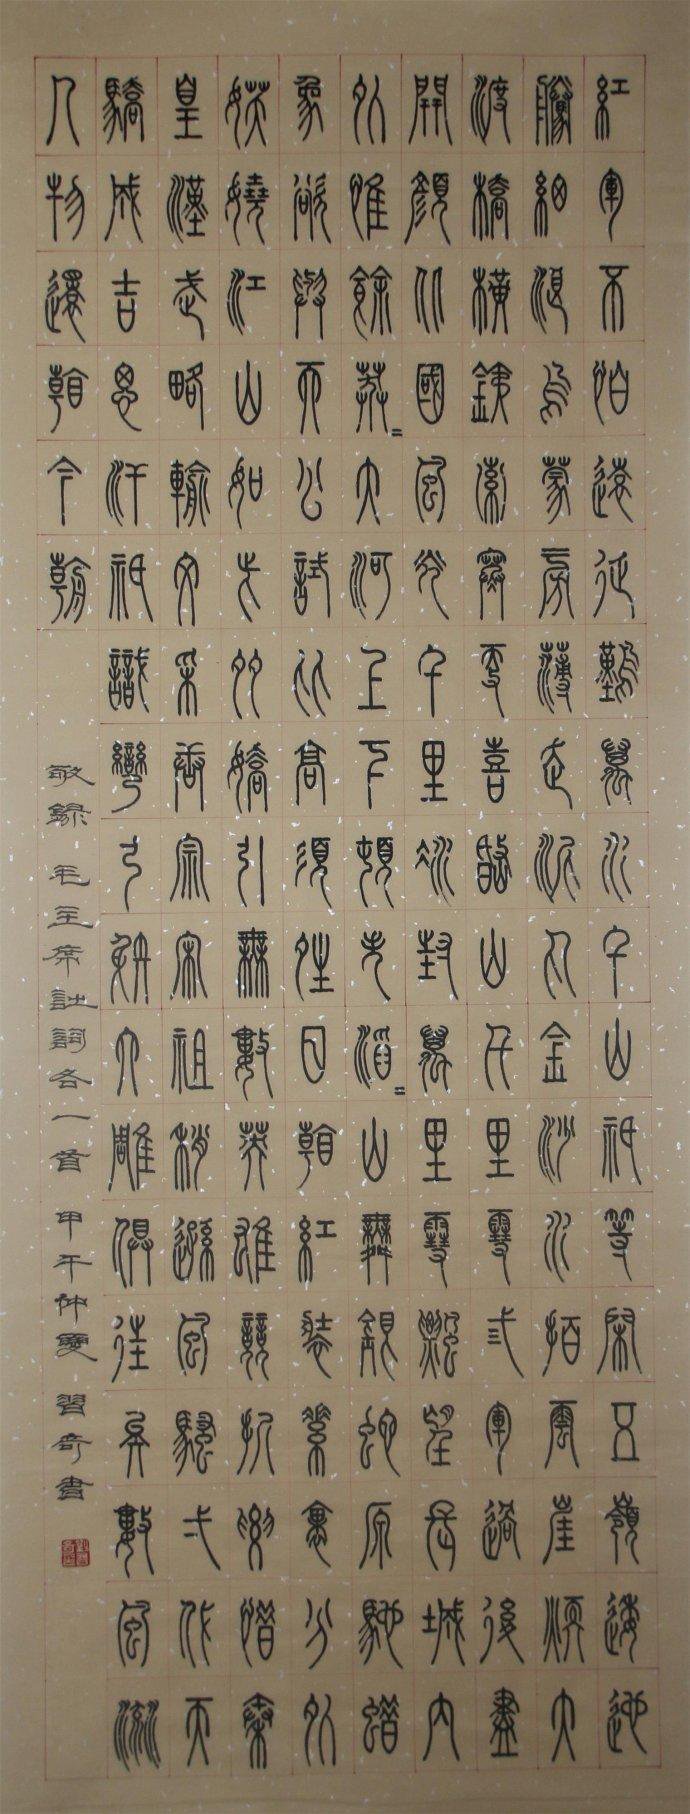 紅軍不怕遠征難萬水千山祇等閑五嶺逶迤
騰細浪烏蒙磅礴走泥丸金沙水拍雲崖煖大
渡橋橫鐵索寒更喜岷山千里雪弎軍過後盡
開顏北國風光千里冰封萬里雪飄望長城内
外惟餘莽=大河上下頓失滔=山舞銀蛇原馳蠟
象欲與天公試比高須晴日看紅裝素裹分外
妖嬈江山如此多嬌引無數英雄競折腰惜秦
皇漢武略輸文采唐宗宋祖稍遜風騷弌代天
驕成吉思汗祇識彎弓射大雕俱往矣數風流
人物還看今朝
敬録毛主席詩詞各一首 甲午仲夏 習奇書